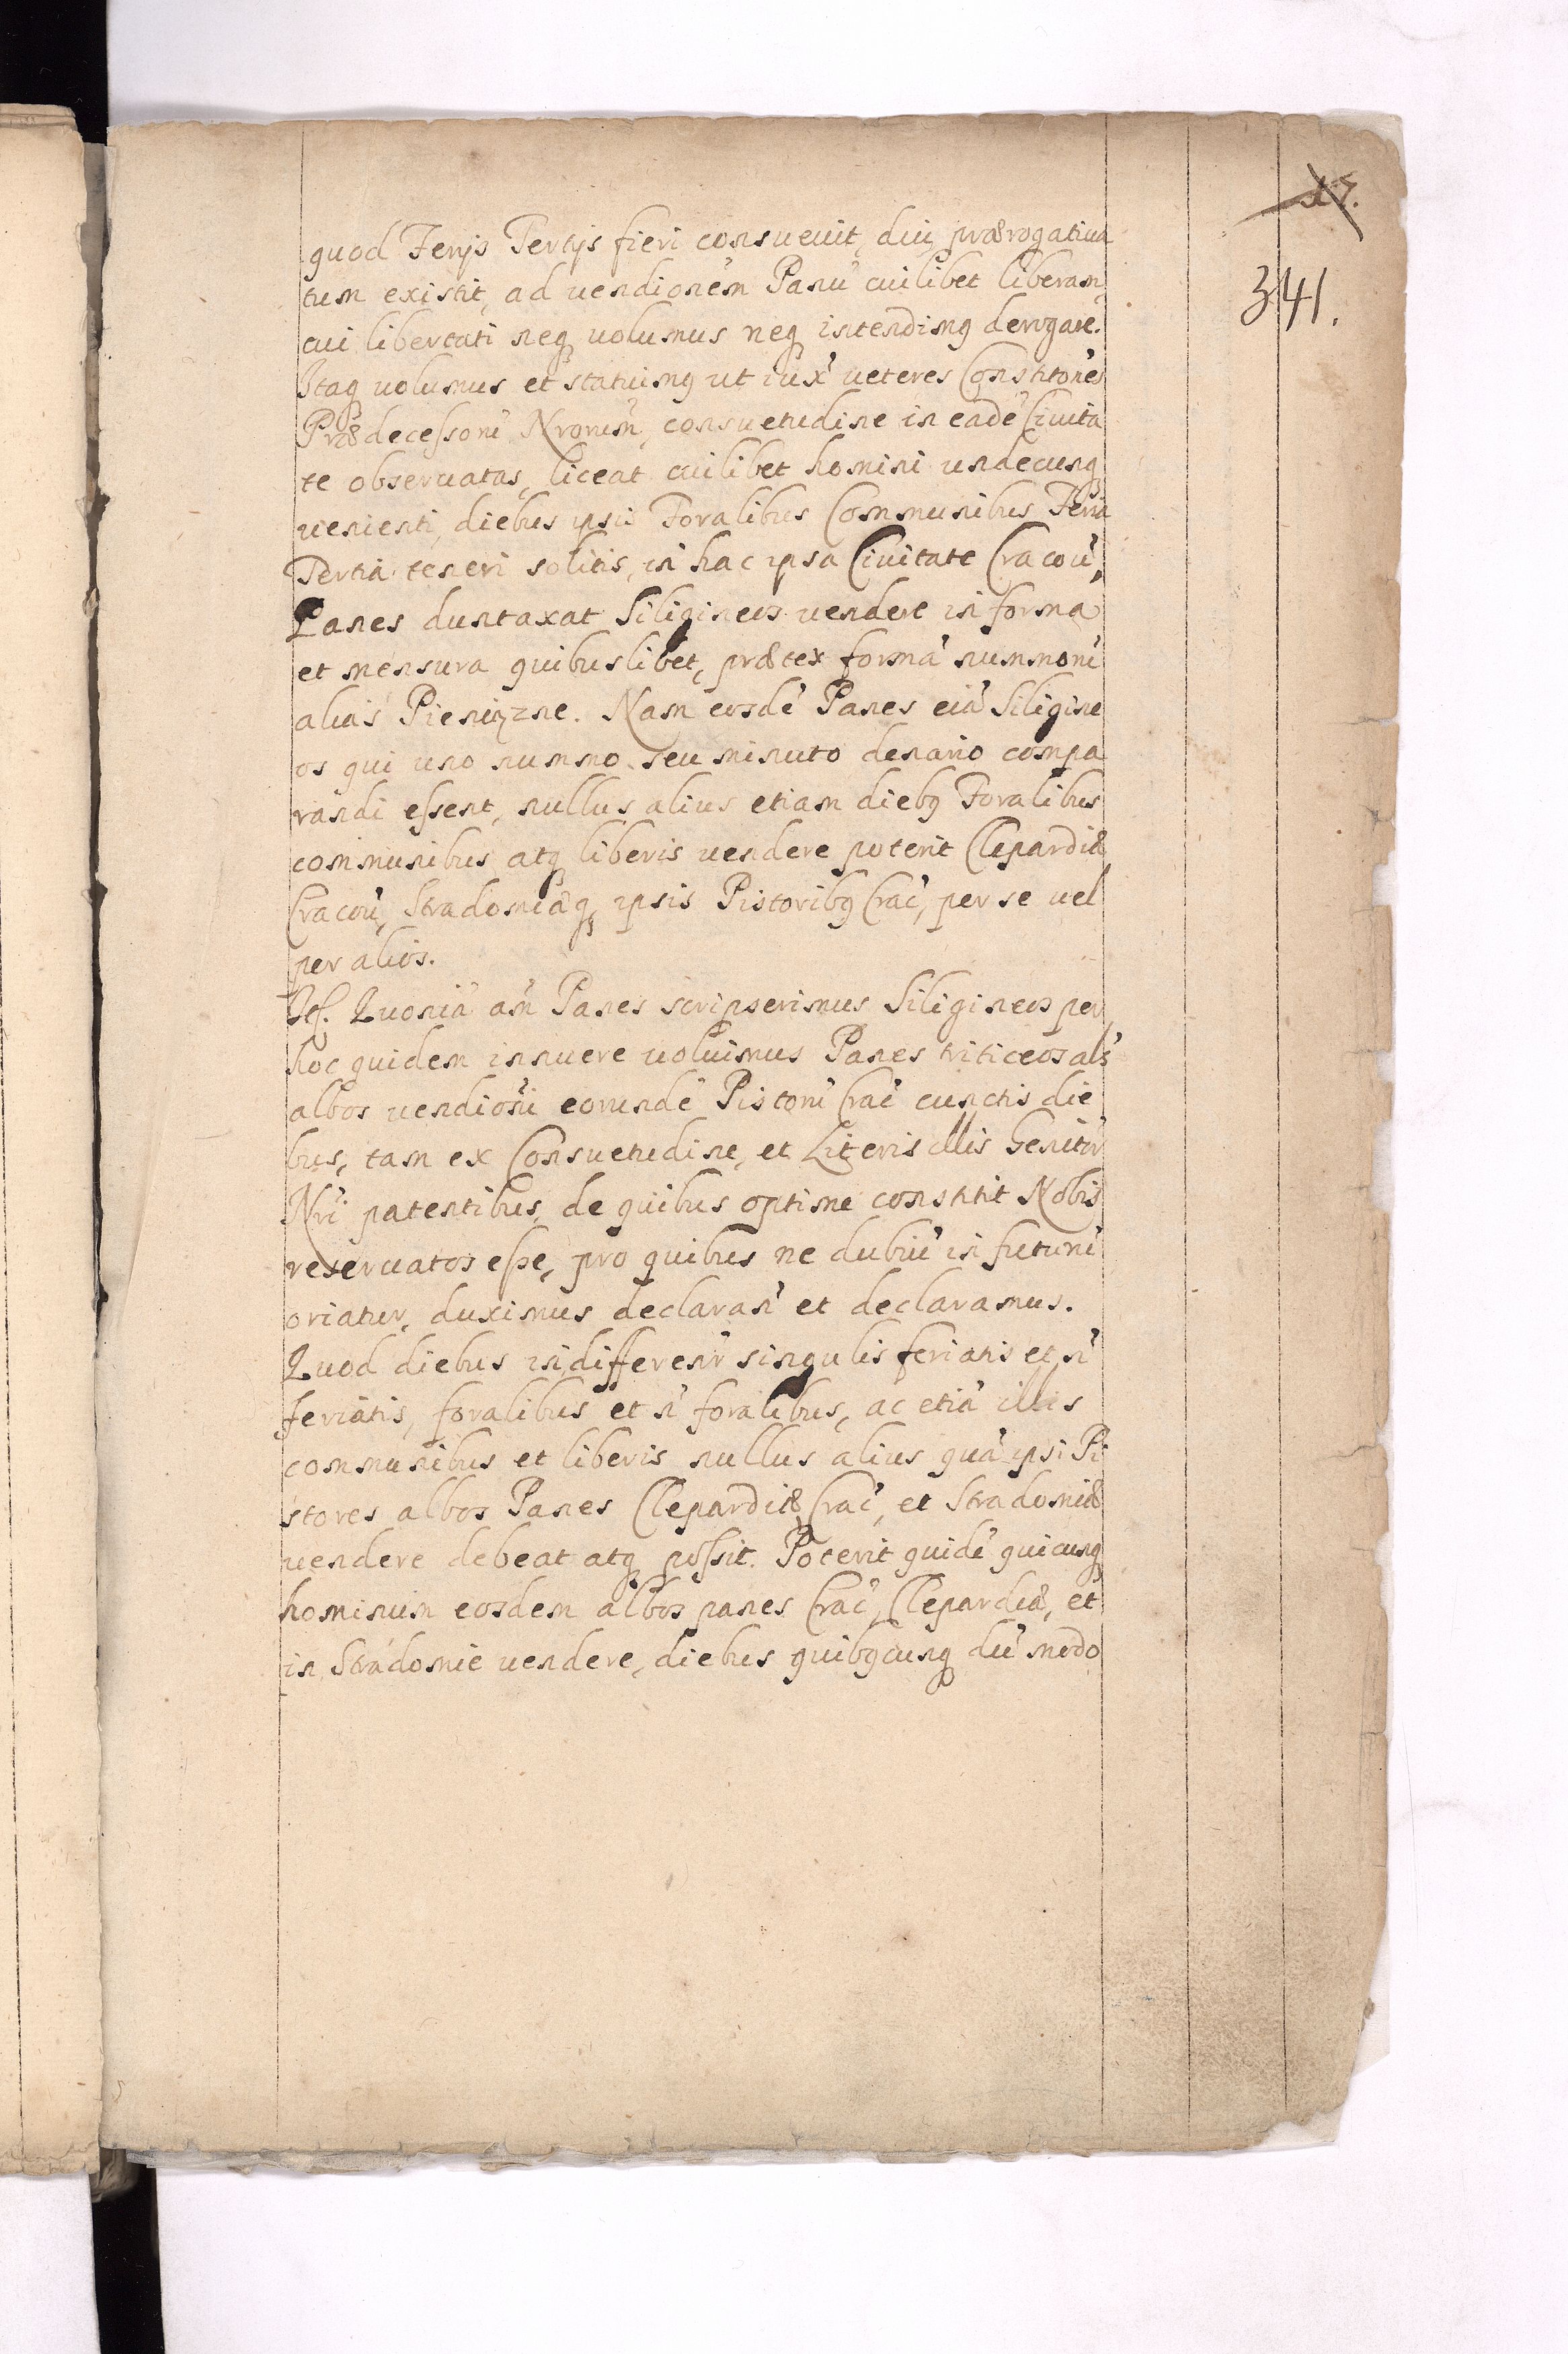 341.
quod Ferijs Tertijs fieri consuevit, diu prærogativa
tum existit, ad vendionem Panu cuilibet liberam,
cui libertati neq volumus neq intendimq derogare.
Itaq volumus et statuimq ut iux veteres Constitones
Prædecessorũ Nrorum, consuetudine in eadẽ Civita
te observatas, liceat cuilibet homini undecunq
venienti, diebus ipsis Foralibus Communibus Feria
Tertia teneri solitis, in hac ipsa Civitate Cracov,
Panes duntaxat Siligineos vendere in forma
et mensura quibuslibet, prætex formã nummorũ
alias Pieniązne. Nam eosdẽ Panes eiã Siligine
os qui uno nummo seu minuto denario compa
randi essent, nullus alius etiam diebq Foralibus
communibus atq liberis vendere poterit Clepardiæ
Cracov, Stradomiæq, ipsis Pistoribq Crac, per se vel
per alios.
Quonia am Panes scripserimus Siligineos per
hoc quidem innuere voluimus Panes triticeos als
albos vendionũ eorundẽ Pistorũ Crac cunctis die
bus, tam ex Consuetudine, et Literis illis Genitor
Nri patentibus, de quibus optime constitit Nobis
reservatos esse, pro quibus ne dubiũ in futurũ
oriatur, duximus declaran et declaramus.
Quod diebus indifferenr singulis feriatis et ñ
feriatis, foralibus et ñ foralibus, ac etiã illis
communibus et liberis nullus alius quã ipsi Pi
stores albos Panes Clepardiæ, Crac, et Stradomiæ
vendere debeat atq possit. Poterit quidẽ quicunq
hominum eosdem albos panes Crac, Clepardiæ, et
in Stradomie vendere, diebus quibqcunq dũ modo